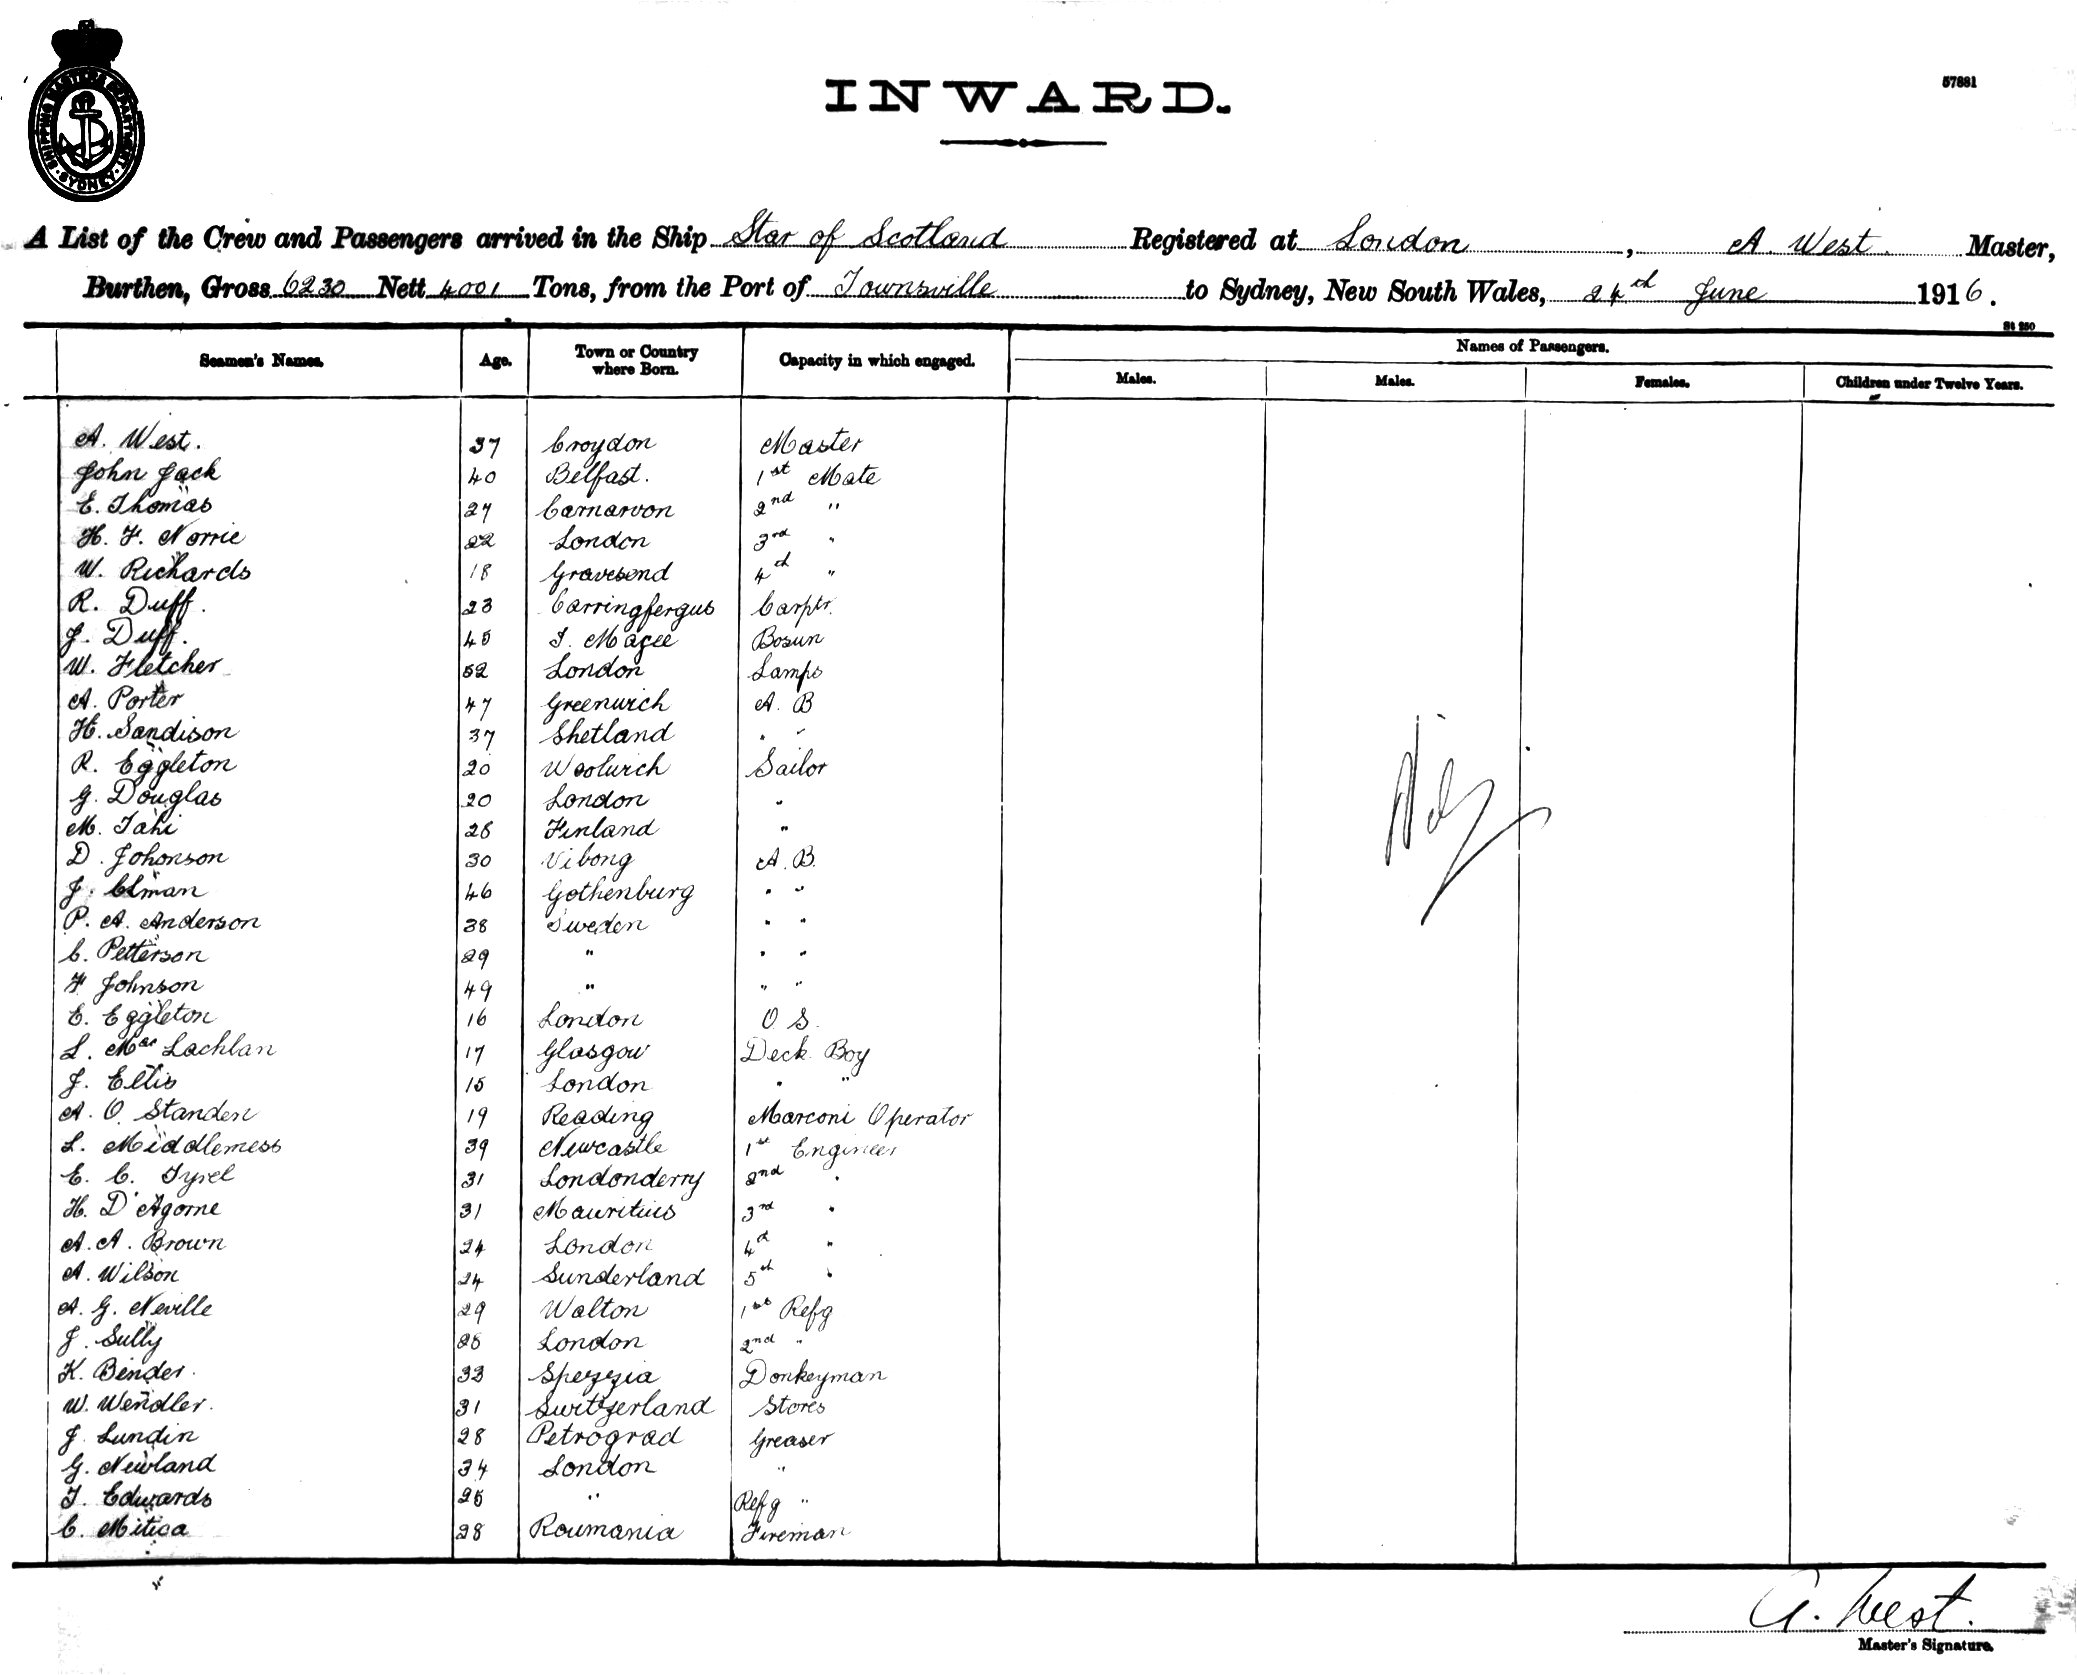 SHIPPING MASTERS DEPARTMENT · SYDNEY ·
INWARD.
57881
A List of the Crew and Passengers arrived in the Ship Star of Scotland Registered at London, A. West. Master,
Burthen, Gross 6230 Nett 4001 Tons, from the Port of Townsville to Sydney, New South Wales, 24th June 1916.
St 250
Seamen's Names. Age. Town or Country where Born. Capacity in which engaged. Names of Passengers.
Males. Males. Females. Children under Twelve Years.
A. West. 37 Croydon Master
John Jack 40 Belfast. 1st Mate
E. Thomas 27 Carnarvon 2nd "
H. F. Norrie 22 London 3rd "
W. Richards 18 Gravesend 4th "
R. Duff. 23 Carringfergus Carptr.
J. Duff. 45 I. Magee Bosun
W. Fletcher 52 London Lamps
A. Porter 47 Greenwich A. B
H. Sandison 37 Shetland " "
R. Eggleton 20 Woolwich Sailor
G. Douglas 20 London "
M. Tahi 28 Finland "
D. Johonson 30 Vibong A. B.
J. Elman 46 Gothenburg " "
P. A. Anderson 38 Sweden " "
C. Petterson 29 " " "
F Johnson 49 " " "
E. Eggleton 16 London O S.
L. Mac Lachlan 17 Glasgow Deck Boy
J. Ellis 15 London " "
A. O. Standen 19 Reading Marconi Operator
L. Middlemess 39 Newcastle 1st Engineer
E. C. Tyrel 31 Londonderry 2nd "
H. D'Agorne 31 Mauritius 3rd "
A. A. Brown 24 London 4th "
A. Wilson 24 Sunderland 5th "
A. G. Neville 29 Walton 1st Refg
J. Sully 28 London 2nd "
K. Bender. 33 Spezzia Donkeyman
W. Wendler. 31 Switzerland Stores
J. Lundin 28 Petrograd Greaser
G. Newland 34 London "
T. Edwards 25 " Refg "
C. Mitica 28 Roumania Fireman
Nil
A. West.
Master's Signature.